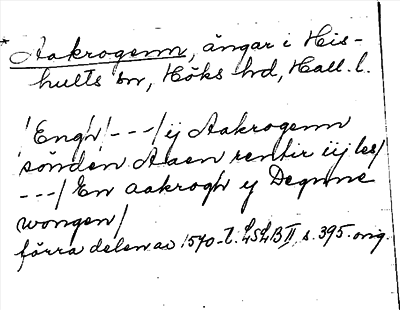 * Aakrogenn, ängar i His-
hults sn, Höks hd, Hall. l.
/Engh/ - - -/ ij Aakrogenn
sönden Aaen rentir iij les/
- - -/ En aakrogh y Degnne
wongen/
förra delen av 1540-t. LSLB II, s. 395. orig.